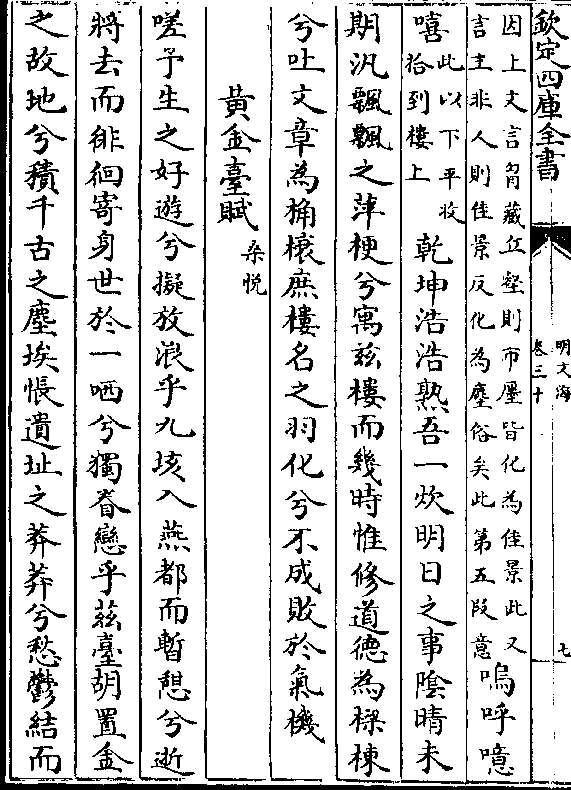 欽定四庫全書
明文海
卷三十
七
因上文言胷藏丘壑則市廛皆化為佳景此又
言主非人則佳景反化為塵俗矣此第五段意
嗚呼噫
嘻
此以下平收
拾到樓上
乾坤浩浩熟吾一炊明日之事陰晴未
期汎飄飄之萍梗兮寓茲樓而幾時惟修道德為樑棟
兮吐文章為桷榱庶樓名之羽化兮不成敗於氣機
黃金臺賦
桑悅
嗟予生之好遊兮擬放浪乎九垓入燕都而暫憩兮逝
將去而徘徊寄身世於一哂兮獨眷戀乎茲臺胡置金
之故地兮積千古之塵埃悵遺址之莽莽兮愁鬱結而